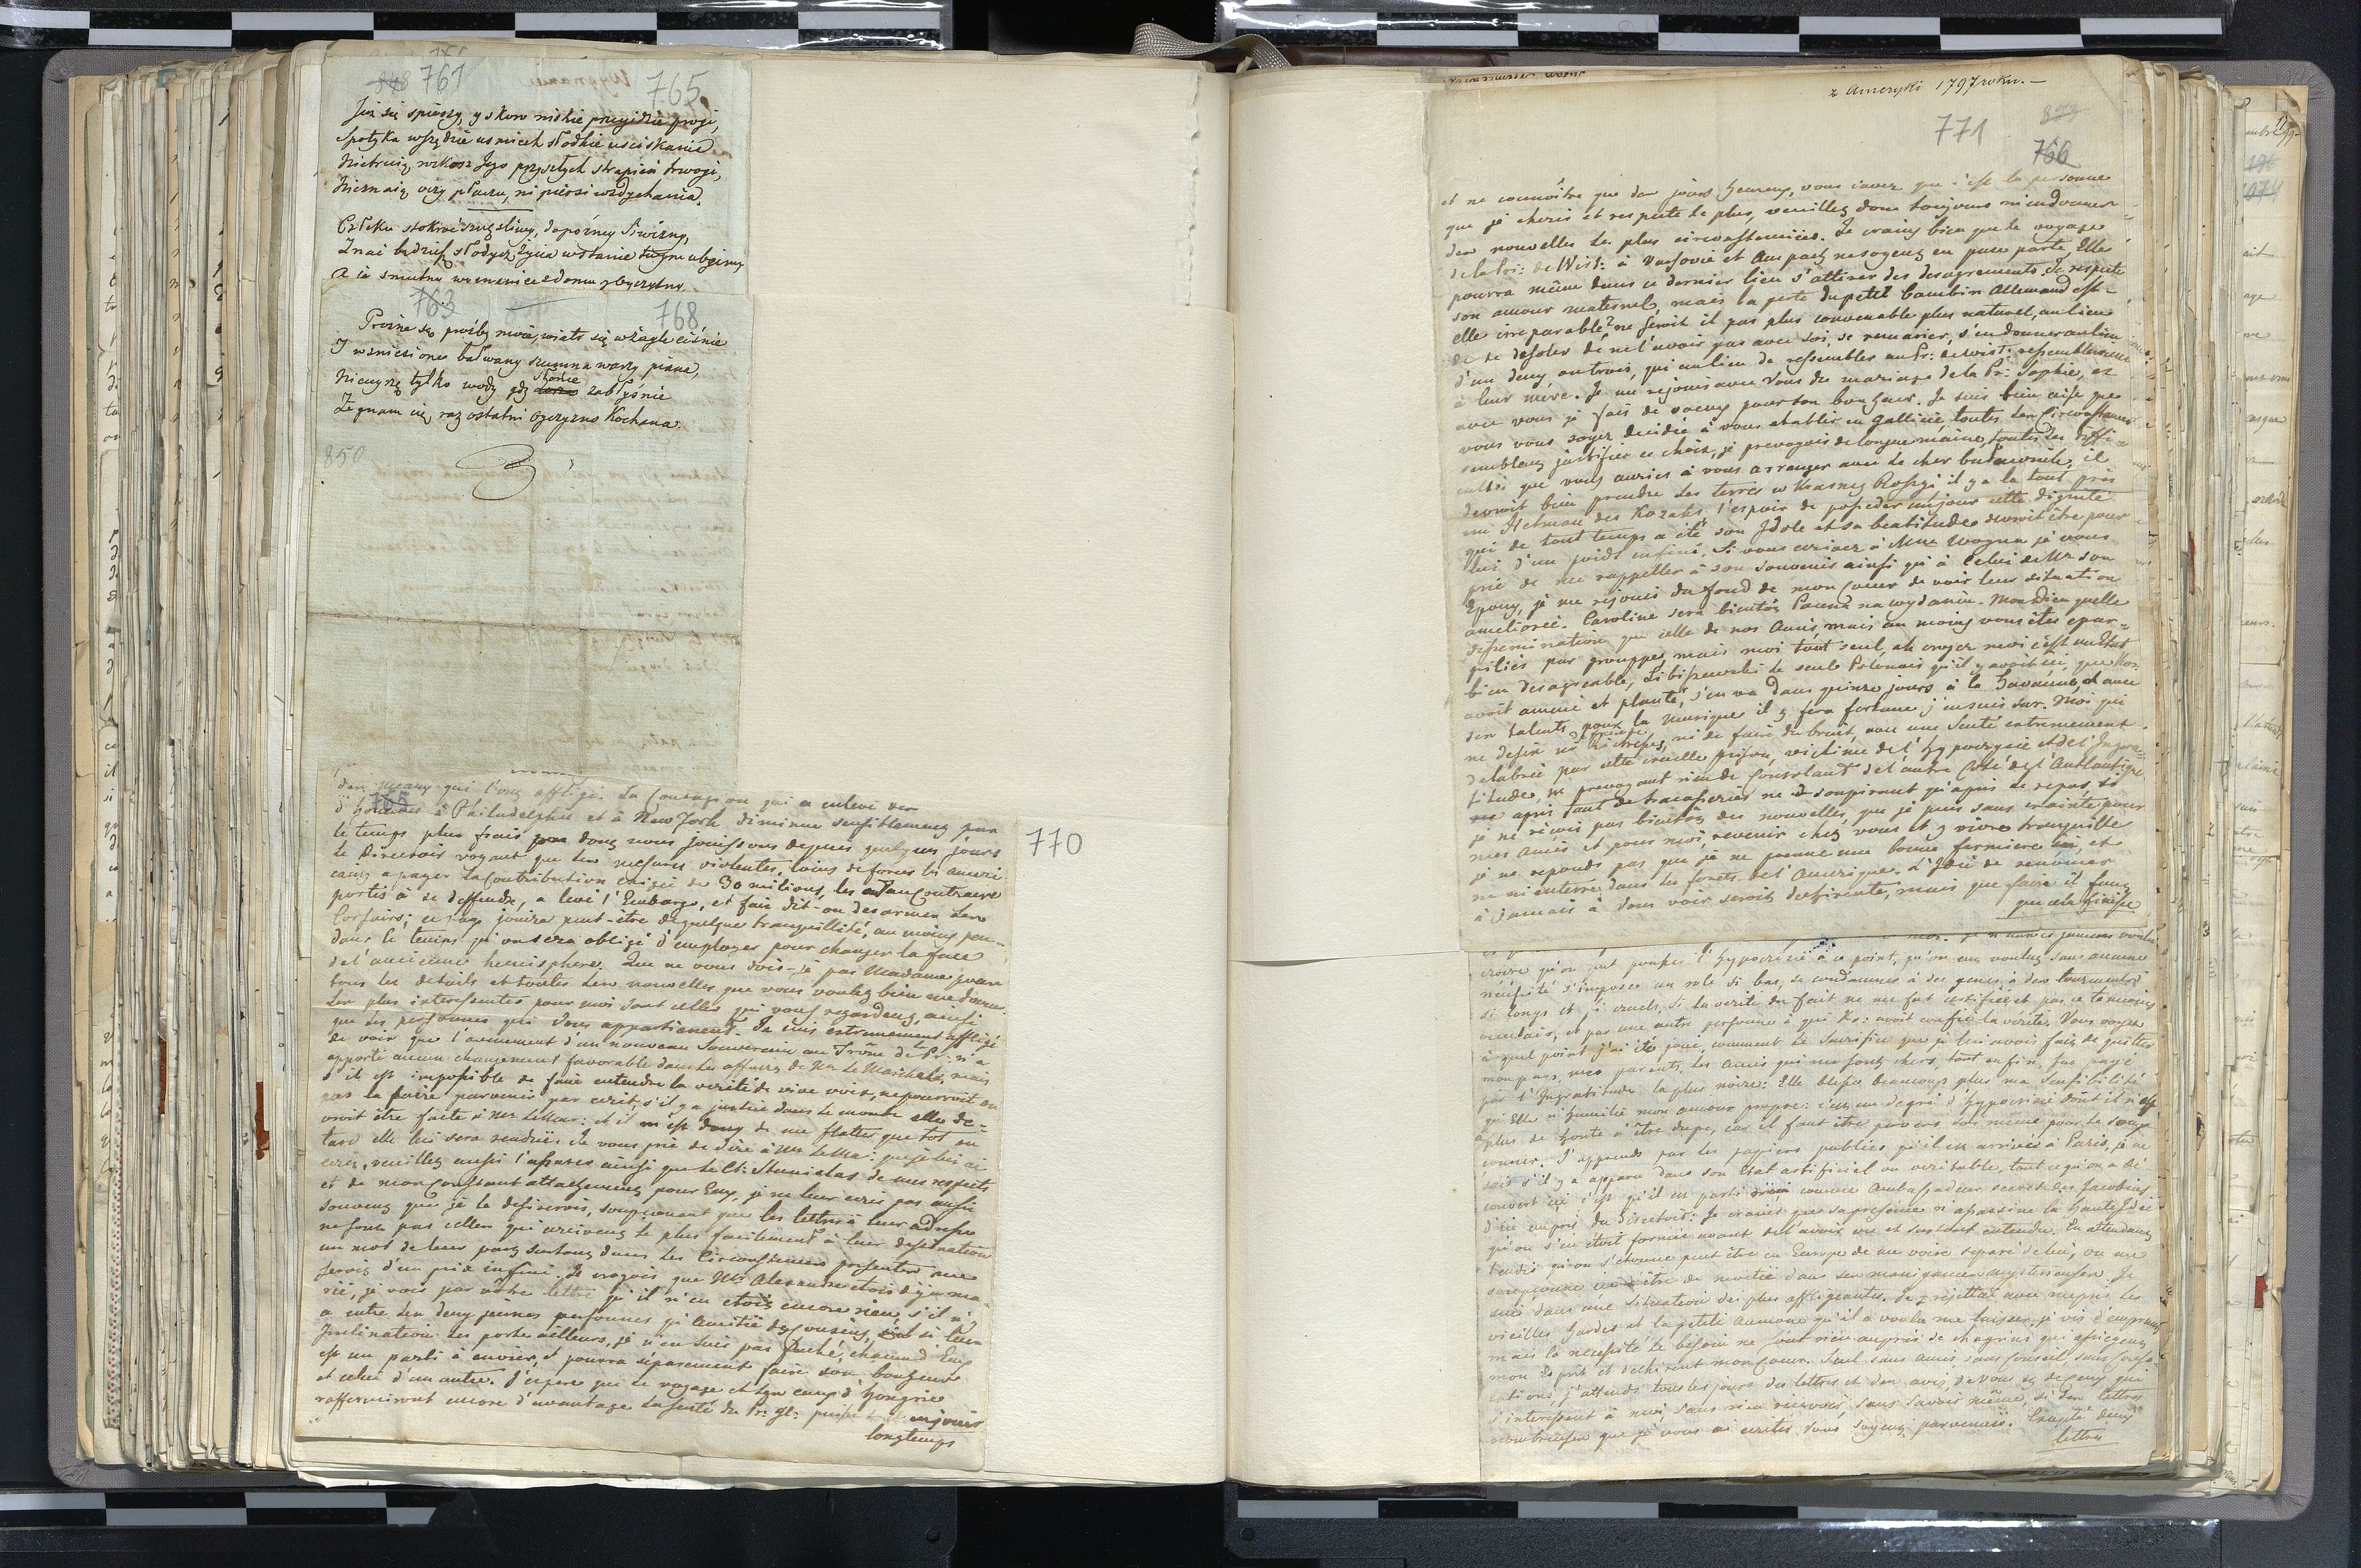 848 761
765
Już się spieszy, y skoro nidzie przyidzie proji,
Spotyka wszędzie usmiech słodkie usciskanie
Nietruią rokosz Jego przyszłych strapień trwogi,
Nieznaią oczy płaczu, ni piersi wzdychania.
Człeku stokroć szczęsliwy, dopóżney Siwizny,
Znać będziesz słodycz życia w stanie
A ia smutny wyzenaniec z domu y Oyczyzny.
763
768
Prożne są prośby moie, wiatr się w żagle ciśnie
J wzniesione bałwany szumna warzy piana,
Nieuyrzę tylko wody gdy słonce zabłyśnie
Żegnam cię raz ostatni Oyczyzno Kochana.
850
765
770
des maux qui l'ont affligé. La Contagion qui a enlevé
d'hommes à Philadelphie et à New York diminue sensiblement par
le temps plus frais dont nous jouissons depuis quelques jours
le Directoir voyant que les mesures violentes, loins de forcer les Ameri-
cains a payer la Contribution exigée de 30 milions, les a au Contraire
portés à se deffendre, a levé l'Embargo, et fait dit-on desarmer les
Corsairs; ce pays jouira peut-être de quelque tranquillité, au moins pen-
dans le tems qu'on sera obligé d'employer pour changer la face
de l'ancienne hemisphere. Que ne vous dois-je pas Madame pour
tous les details et toutes les nouvelles que vous voulez bien me donner
les plus interessentes pour moi sont celles qui vous regardent, ainsi
que les personnes qui vous appartienent. Je suis extremement affligé
de voir que l'avenement d'un nouveau Souverain au Trône de Pr: n'a
apporté aucun changement favorable dans les affaires de Mr le Marechal, mais
s'il est impossible de faire entendre la verité de vive voix, ne pourroit on
pas la faire parvenir par ecrit, s'il y a justice dans le monde elle de-
vroit être faite à Mr le Mar: et il m'est doux de me flatter que tot ou
tard elle lui sera rendüe. Je vous prie de dire à Mr le Ma: que je lui ai
ecrit, veuillez aussi l'assurer ainsi que le Ct: Stanislas de mes respects
et de mon Constant attachement pour Eux, je ne leur ecris pas aussi
souvent que je le desirerois, soupçonnant que les lettres à leur adresse
ne sont pas celles qui arrivent le plus facilement à leur destination
un mot de leur part surtout dans les Circonstances presentes me
seroit d'un prix infini. Je croyois que Mr Alexandre etois deja ma-
rié, je vois par vôtre lettre qu'il n'en etois encore rien, s'il n'y
a entre les deux jeunes personnes qu'amitié de Cousins, et si leur
Inclination les porte ailleurs, je n'en suis pas faché, chacun d'Eux
est un parti à envier, et pourra séparement faire son bonheur
et celui d'un autre. J'espere que le voyage et les eaux d'Hongrie
raffermiront encore d'avantage la santé du Pr: Gl:
longtemps
z Ameryki 1797 roku. —
771
766
et ne connoître que des jours heureux, vous savez que c'est la personne
que je cheris et respecte le plus, veuillez donc toujours m'en donner
des nouvelles les plus circonstanciées. Je crains bien que le voyage
de la Pri: de Wirt: à Varsovie et Ailleurs ne soyent en pure perte Elle
pourra même dans ce dernier lieu s'attirer des desagrements. Je respecte
son amour maternel, mais la perte du petit bambin Allemand est-
elle irreparable? ne seroit il pas plus convenable plus naturel, au lieu
de se desoler de ne l'avoir pas avec soi, se remarier, s'en donner au lieu
d'un deux ou trois, qui au lieu de ressembler au Pr: de Wirt: ressembleroient
à leur mère. Je me rejouis avec vous du mariage de la Pr: Sophie, et
avec vous je fais de voeux pour son bonheur. Je suis bien aise que
vous vous soyez decidée à vous etablir en Gallicie, toutes les Circonstances
semblent justifier ce choix, je prevoyois de longue maine toutes les diffi-
cultés que vous auriez à vous arranger avec le cher bulawonik, il
devroit bien prendre les terres w Krasney Rossyi il y a la tout près
un Hetman des Kozaks, l'espoir de posseder un jour cette dignité
qui de tout temps a été son Idole et sa beatitude devroit être pour
lui d'un poids infini. Si vous ecrivez à Mme Wogna je vous
prie de me rappeller à son souvenir ainsi qu'à Celui de Mr son
Epoux, je me rejouis du fond de mon Coeur de voir leur situation
ameliorée. Caroline sera bientôt Panna na wydaniu. Mon Dieu quelle
dissemination que celle de nos Amis, mais au moins vous êtes epar-
pillés par grouppes, mais moi tout seul, ah croyez moi c'est un Etat
bien desagreable, Libiszewski le seule Polonais qu'il y avoit ici, que Kos:
avoit amené et planté, s'en va dans quinze jours à la Havanne, et avec
ses talents pour la Musique il y fera fortune j'en suis sur. Moi qui
ne desire ni Richesses, ni de faire du bruit, avec une Santé extremement
delabrée par cette cruelle prison, victime de l'hypocrysie et de l'Ingra-
titude, ne prevoyant rien de Consolant de l'autre Coté de l'Antlantique
apres tant de tracasseries ne soupirant qu'après le repos, si
je ne reçois pas bientôt des nouvelles, que je puis sans crainte pour
mes Amis et pour moi, revenir chez vous et y vivre tranquille
je ne reponds pas que je ne prenne une bonne fermiere, et
ne m'enterre dans les forets de l'Amerique. L'Idée de renoncer
à Jamais à vous voir seroit dechirente, mais que faire il faut
que cela finisse
je n'aurois jamais voulu
croire qu'on put pousser l'hypocrisie à ce point, qu'on eut voulut sans aucune
nécessité s'imposer un role si bas, se condamner à des genes, à des tourmentes
si longs et si cruels, si la verité du fait ne me fut certifiée, et par ce témoin
oculaire, et par une autre personne à qui Ko: avoit confié la vérité. Vous voyez
à quel point j'ai été joué, comment le Sacrifice que je lui avois fait, de quitter
mon pays, mes parents, les Amis qui me sont chers, tout enfin, fut payé
par l'Ingratitude la plus noire: Elle blessa beaucoup plus ma Sensibilité
qu'Elle n'humilia mon amour propre: c'est un degré d'hypocrisie dont il n'est
plus de honte à être dupe, car il faut être pervers soi même pour le soup-
çonner. J'apprends par les papiers publics qu'il est arrivé à Paris, je ne
sais s'il y a apparu dans son Etat artificiel ou veritable, tout ce qu'on a dé-
couvert ici c'est qu'il est parti comme Ambassadeur secret des Jacobins
d'ici auprès du Directoir: Je crains que sa presence n'assassine la haute Idée
qu'on s'en étoit formée avant de l'avoir vu et surtout entendu. En attendant
tandis qu'on s'étonne peut être en Europe de me voire separé de lui, on me
soupçonne ici d'être de moitié dans ses manigances mysterieuses. Je
suis dans une Situation des plus affligeantes. J'ai rejetté avec mepris les
vieilles hardes et la petite Aumone qu'il a voulu me laisser, je vis d'emprunt
mais la necessité le besoin ne sont rien auprès de chagrins qui assiegent
mon Esprit et dechirent mon Coeur. Seul sans Amis, sans Conseil, sans Conso-
lations, j'attends tous les jours des lettres et des avis, de vous et de ceux qui
s'interessent à moi, sans rien recevoir, sans savoir même, si des lettres
nombreuses que je vous ai ecrites vous soyent parvenües. Excepté deux
lettres